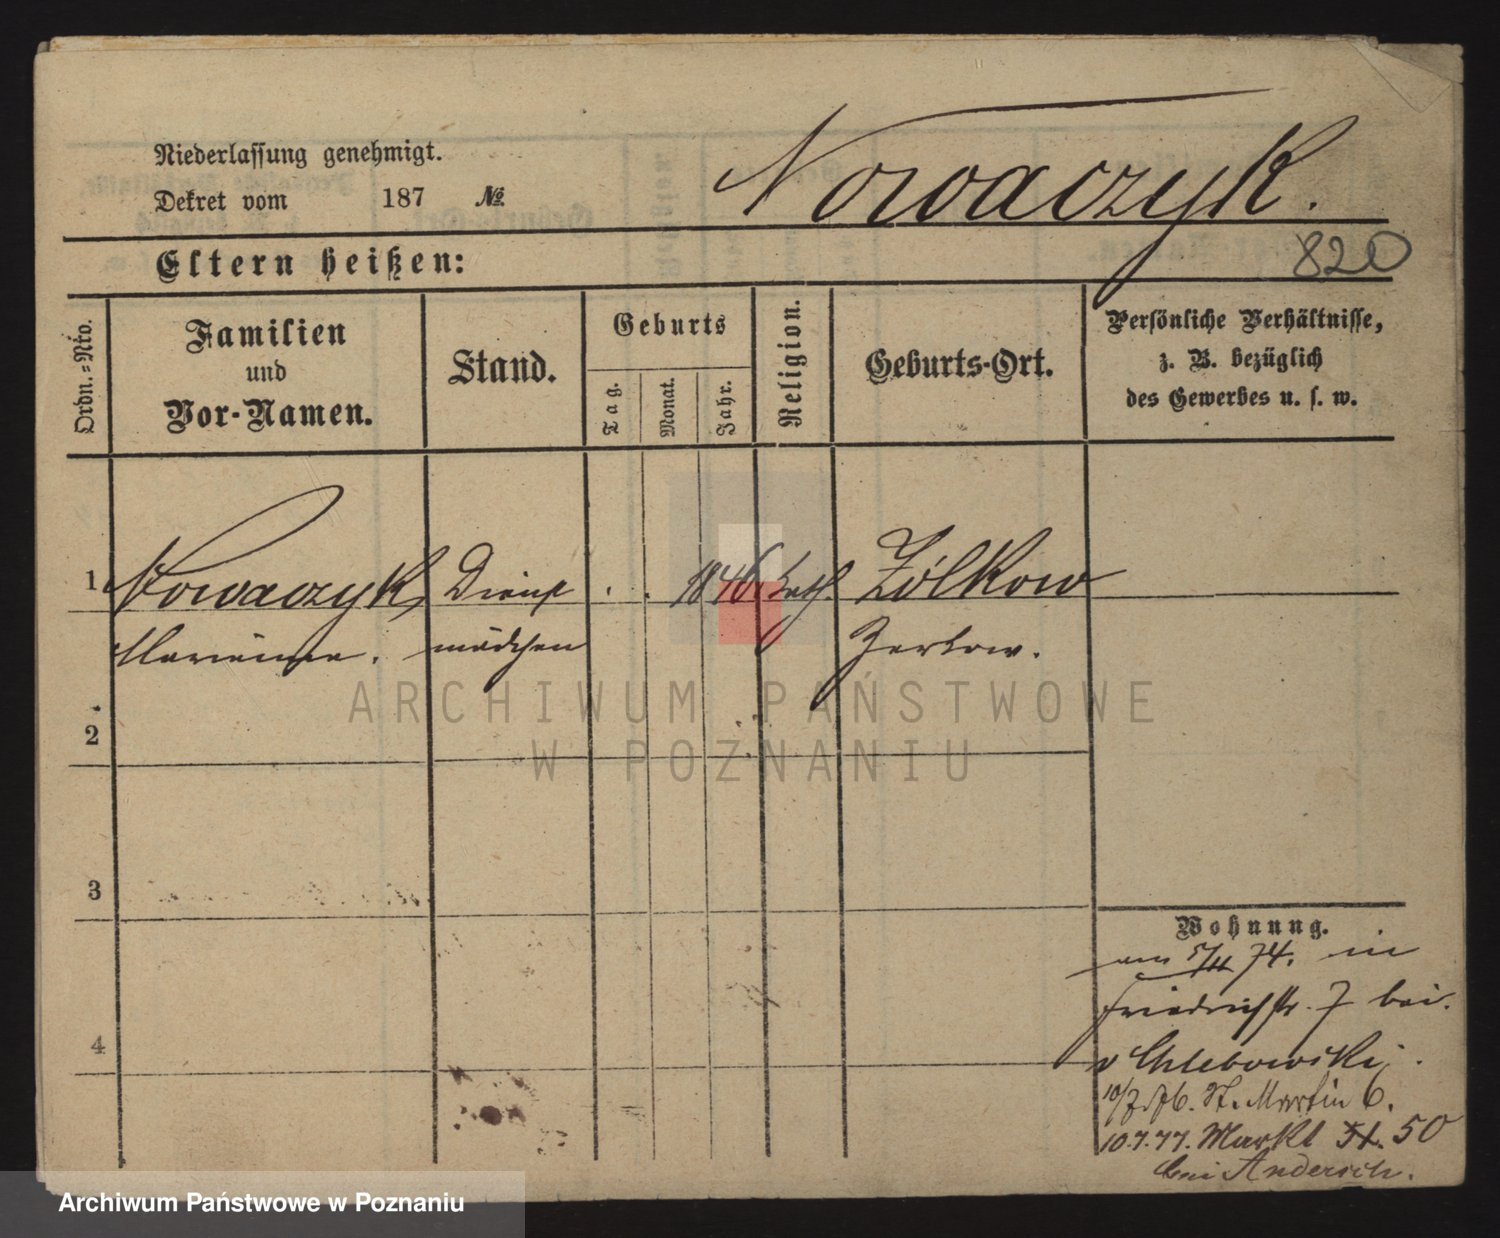 Niederlassung genehmigt.
Dekret vom 187 №
Nowaczyk.
820
Eltern heißen:
Ordn.=Nro.
Familien
und
Vor-Namen.
Stand.
Geburts
Tag.
Monat.
Jahr.
Religion.
Geburts-Ort.
Persönliche Verhältnisse,
z. B. bezüglich
des Gewerbes u. s. w.
1 Nowaczyk Dienst . . 1846. kath. Żólkow
Marianna. mädchen Zerkow.
2
3
4
Wohnung.
am 5/11 74. in
Friedrichstr. 7 bei.
v Chlebowski.
10/7.76. St. Martin 6.
10.7.77. Markt 51. 50
bei Andersch.
ARCHIWUM PAŃSTWOWE
W POZNANIU
Archiwum Państwowe w Poznaniu